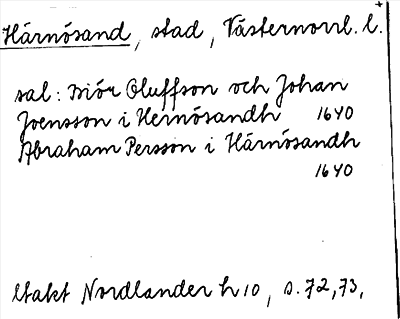 Härnösand, stad, Västernorrl. l.
sal: Mór Oluffson och Johan
Joensson i Hernösandh 1640
Abraham Persson i Härnösandh
1640
Nordlander h 10, s. 72, 73,